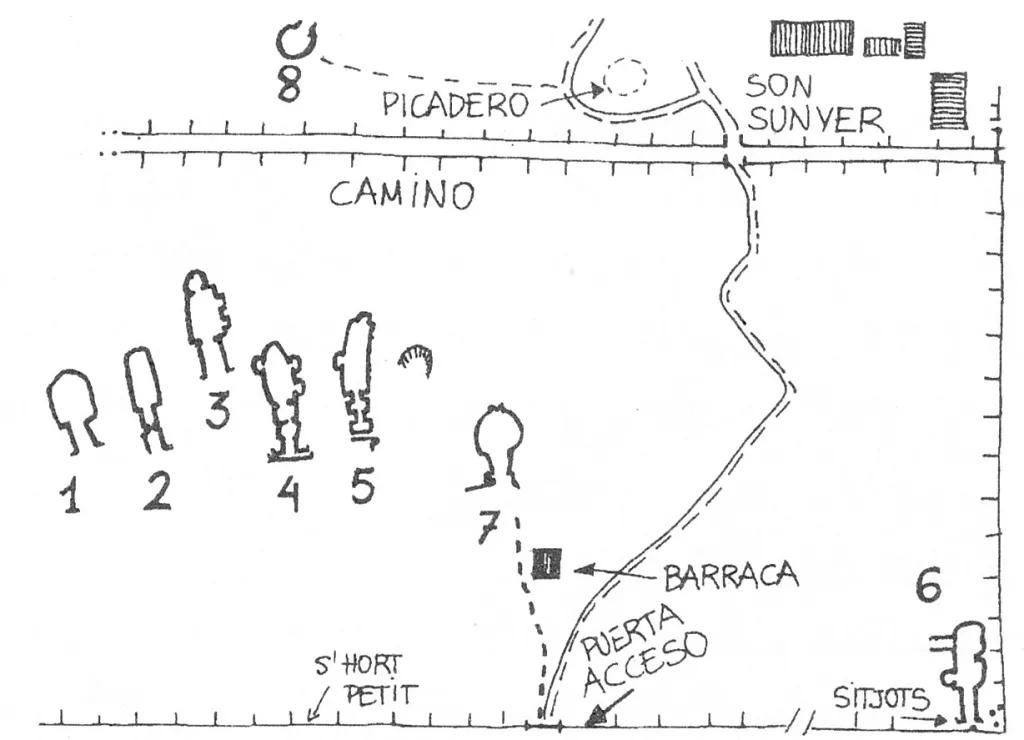 8
PICADERO
SON
SUNYER
CAMINO
3
1
2
4
5
7
BARRACA
6
PUERTA
ACCESO
S'HORT
PETIT
SITJOTS